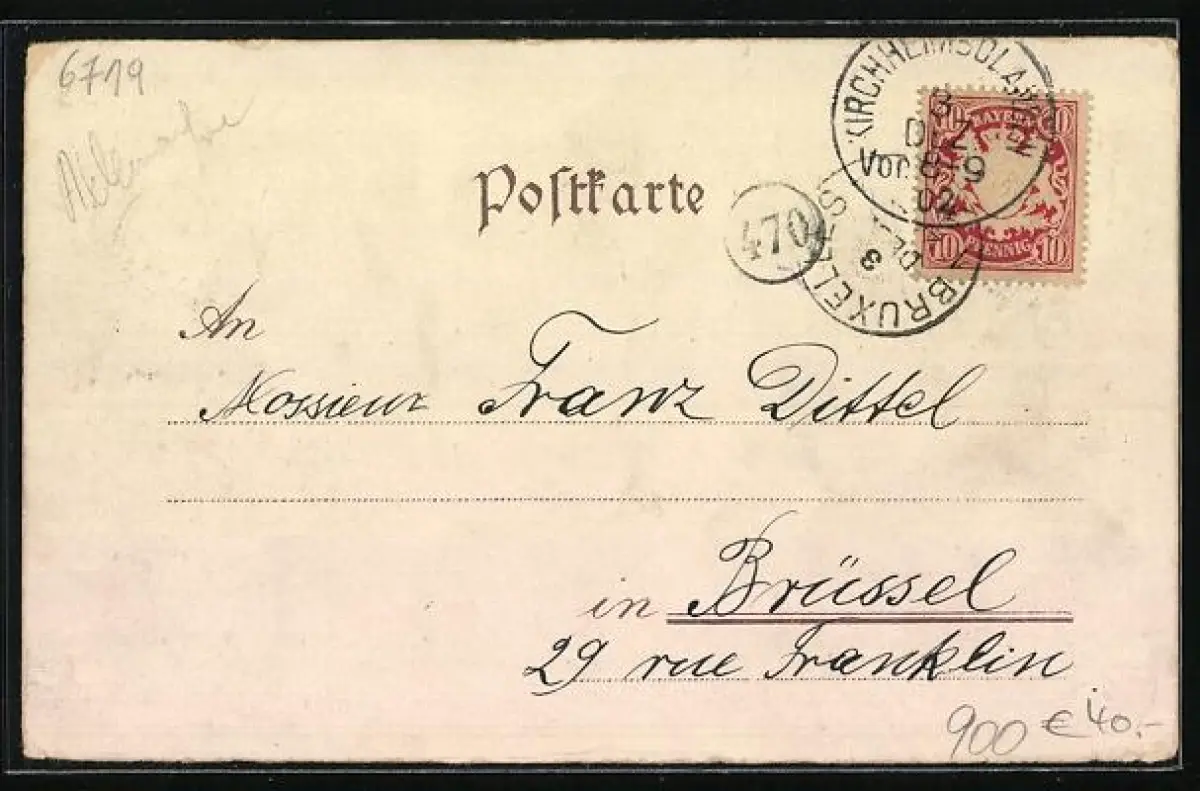 6719
Postkarte
KIRCHHEIMBOLANDEN
3 DEZ
Vor. 8-9
02
10 BAYERN 10
10 PFENNIG 10
470
BRUXELLES
3
An
Monsieur Franz Dittel
in Brüssel
29 rue Franklin
900 € 40.-